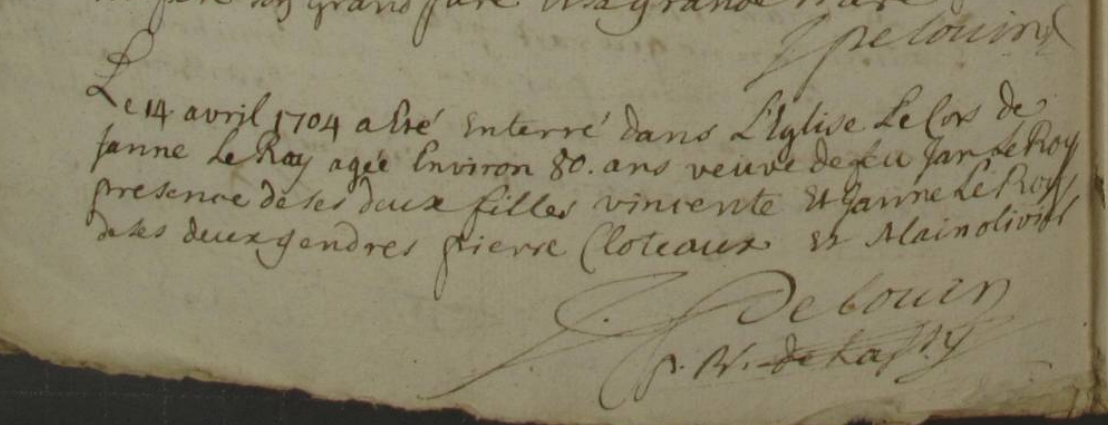 son grand pere et sa grande mere
Le 14 avril 1704 a Eté Enterré dans L'Eglise Le Cors de
Janne Le Roy agée Environ 80. ans veuve de feu Jan Le Roy
presence de ses deux filles vincente Et Janne Le Roy
de ses deux gendres pierre Cloteaux Et Alain olivier